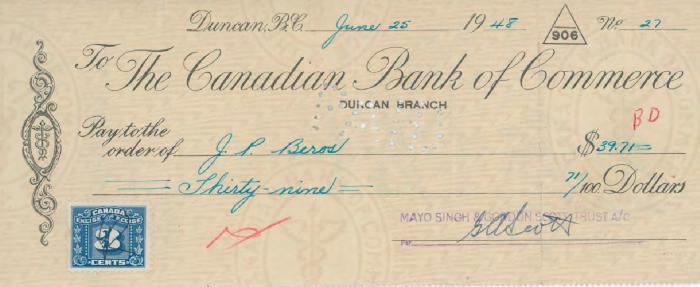 Duncan, B.C. June 25 1948 906 No 27
To The Canadian Bank of Commerce
DUNCAN BRANCH
BD
Pay to the
order of J. P. Beros $39.71
Thirty-nine 71/100 Dollars
MAYO SINGH & GORDON SCOTT TRUST A/C
Per
CANADA
EXCISE EXCISE
3
CENTS